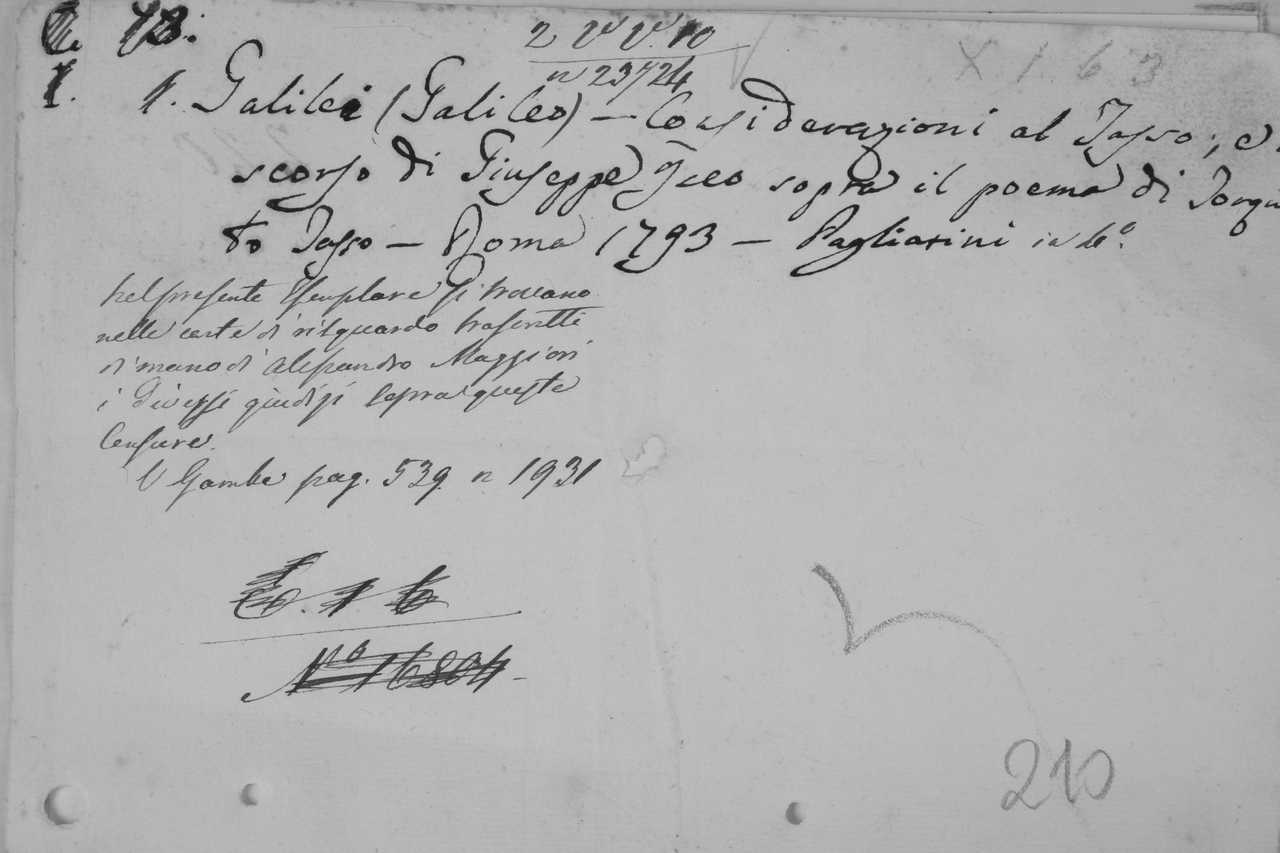 C. 43.
2 VV. 10
n 23724
X 1. 6 3
1. 1. Galilei (Galileo) — Considerazioni al Tasso; e di
scorso di Giuseppe Iseo sopra il poema di Torqua
to Tasso — Roma 1793 — Pagliarini in 4º.
Nel presente Esemplare si trovano
nelle carte di risguardo trascritti
di mano di Alessandro Maggiori
i diversi giudizi sopra queste
Censure.
V Gamba pag. 539. n 1931
1 6
Nº 16804
210